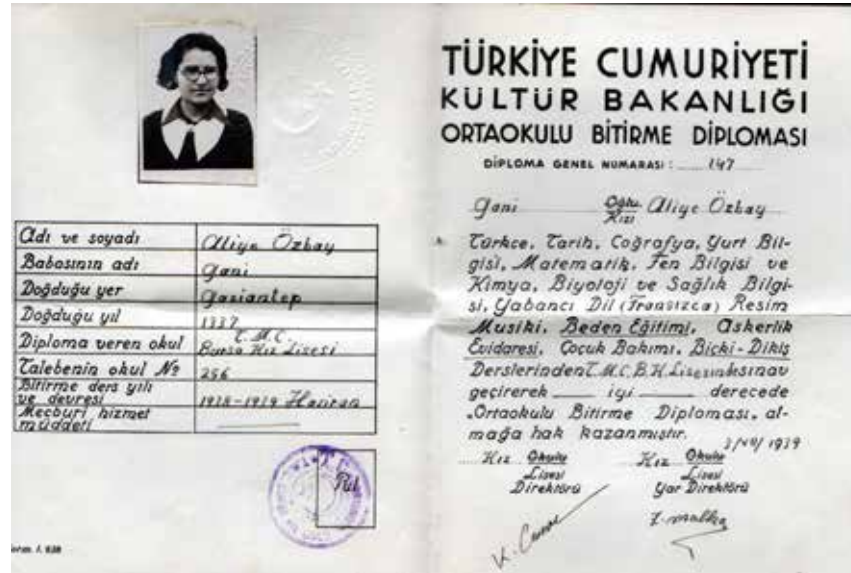 Adı ve soyadı Aliye Özbay
Babasının adı Gani
Doğduğu yer Gaziantep
Doğduğu yıl 1337
Diploma veren okul T.M.C. Bursa Kız Lisesi
Talebenin okul № 256
Bitirme ders yılı ve devresi 1938-1939 Haziran
Mecburi hizmet müddeti
Pul
TÜRKİYE CUMURİYETİ
KÜLTÜR BAKANLIĞI
ORTAOKULU BİTİRME DİPLOMASI
DİPLOMA GENEL NUMARASI : 147
Gani Oğlu Kızı Aliye Özbay
Türkce, Tarih, Coğrafya, Yurt Bil-
gisi, Matematik, Fen Bilgisi ve
Kimya, Biyoloji ve Sağlık Bilgi-
si, Yabancı Dil (Fransızca) Resim
Musiki, Beden Eğitimi, Askerlik
Evidaresi, Çocuk Bakımı, Biçki-Dikiş
Derslerinden T.M.C.B.K. Lisesinde sınav
geçirerek iyi derecede
"Ortaokulu Bitirme Diploması" al-
mağa hak kazanmıştır.
3/VII/1939
Kız Okulu Kız Okulu
Lisesi Lisesi
Direktörü Yar Direktörü